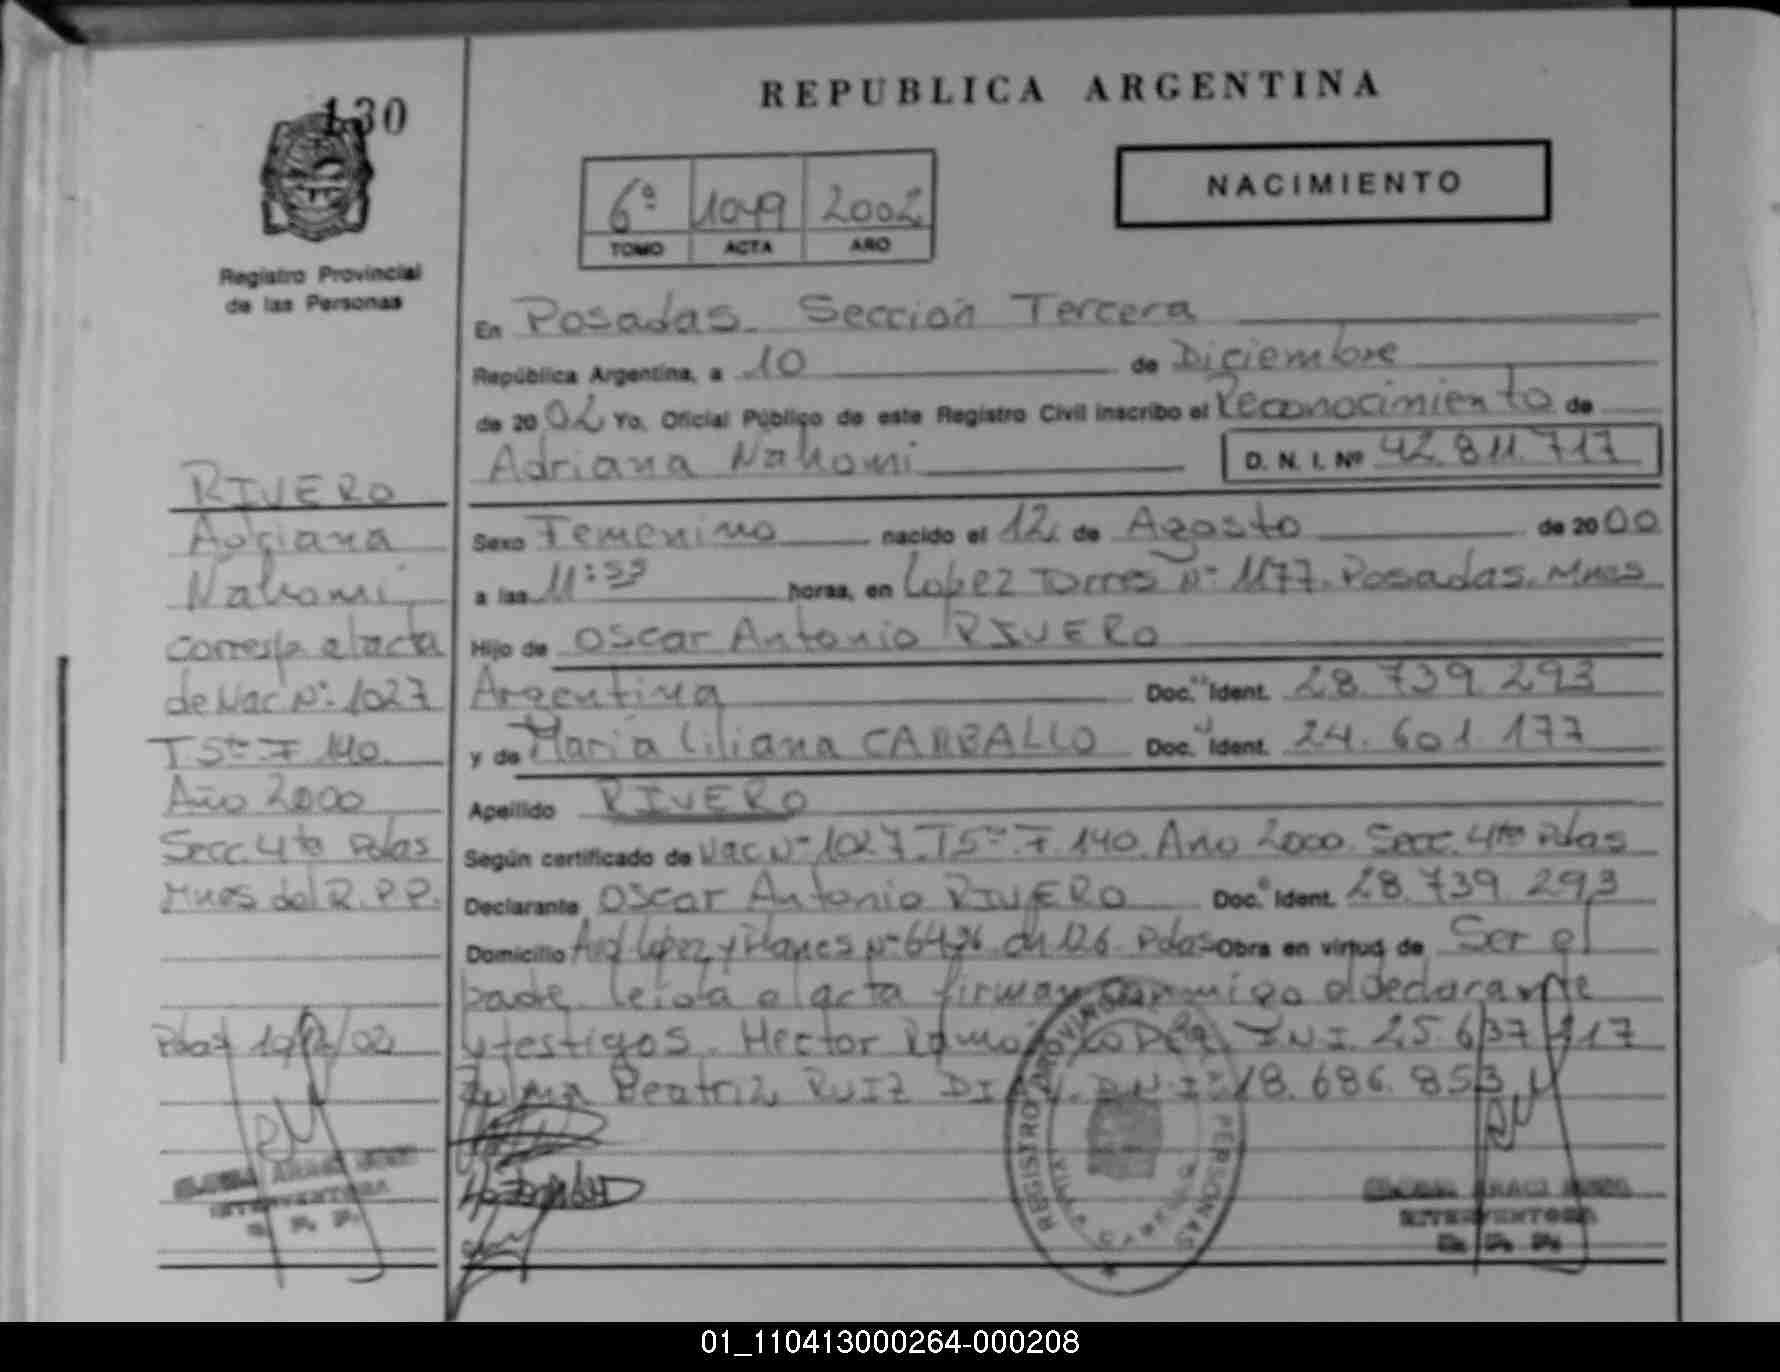 130
REPUBLICA ARGENTINA
NACIMIENTO
6º 1049 2002
TOMO ACTA AÑO
Registro Provincial
de las Personas
En Posadas Sección Tercera
República Argentina, a 10 de Diciembre
de 2002 Yo, Oficial Público de este Registro Civil inscribo el Reconocimiento de
Adriana Nahomi D. N. I. Nº 42.811.717
Sexo Femenino nacido el 12 de Agosto de 2000
a las 11:55 horas, en Lopez Torres Nº 1177. Posadas. Mnes
Hijo de Oscar Antonio RIVERO
Argentina Doc. Ident. 28.739.293
y de Maria Liliana CARBALLO Doc. Ident. 24.601.177
Apellido RIVERO
Según certificado de Nac Nº 1027. T 5to F 140. Año 2000. Secc. 4ta Pdas
Declarante Oscar Antonio RIVERO Doc. Ident. 28.739.293
Domicilio Lopez y Planes Nº 6496 ch 126 Pdas Obra en virtud de Ser el
padre. leida el acta firman conmigo el declarante
y testigos. Hector DNI. 25.637.217
Beatriz RUIZ D.N.I. 18.686.853
RIVERO
Adriana
Nahomi
corresp al acta
de Nac Nº 1027
T 5to F 140.
Año 2000
Secc. 4ta Pdas
Mnes del R.P.P.
Pdas 10/12/02
INTERVENTORA
R. P. P.
REGISTRO PROVINCIAL PERSONAS
INTERVENTORA
R. P. P.
01_110413000264-000208